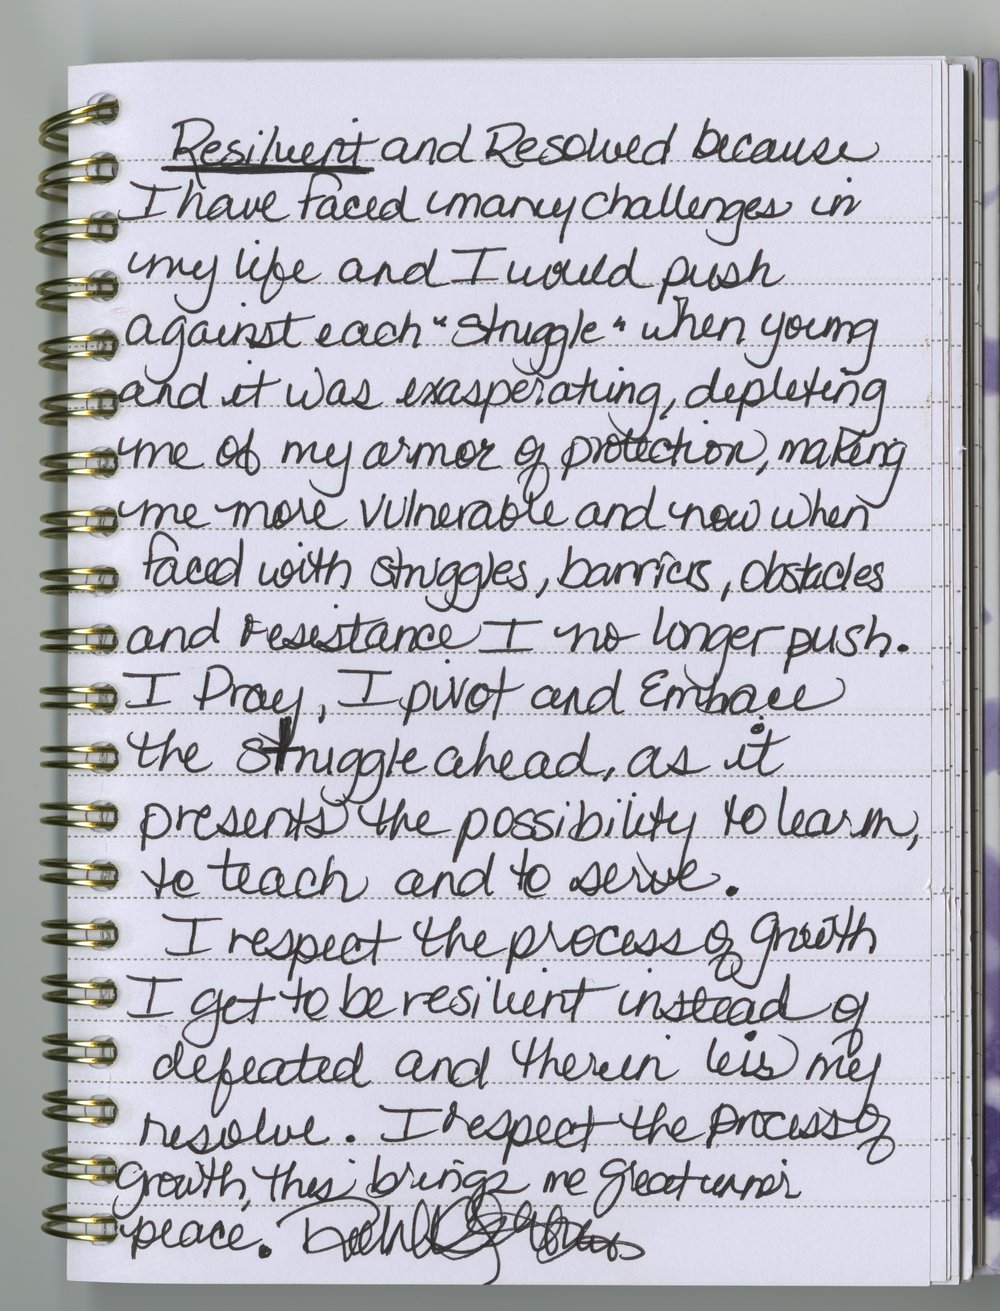 Resilient and Resolved because
I have faced many challenges in
my life and I would push
against each "struggle" when young
and it was exasperating, depleting
me of my armor of protection, making
me more vulnerable and now when
faced with struggles, barriers, obstacles
and resistance I no longer push.
I Pray, I pivot and Embrace
the struggle ahead, as it
presents the possibility to learn,
to teach and to serve.
I respect the process of growth
I get to be resilient instead of
defeated and therein lies my
resolve. I respect the process of
growth, this brings me great inner
peace.